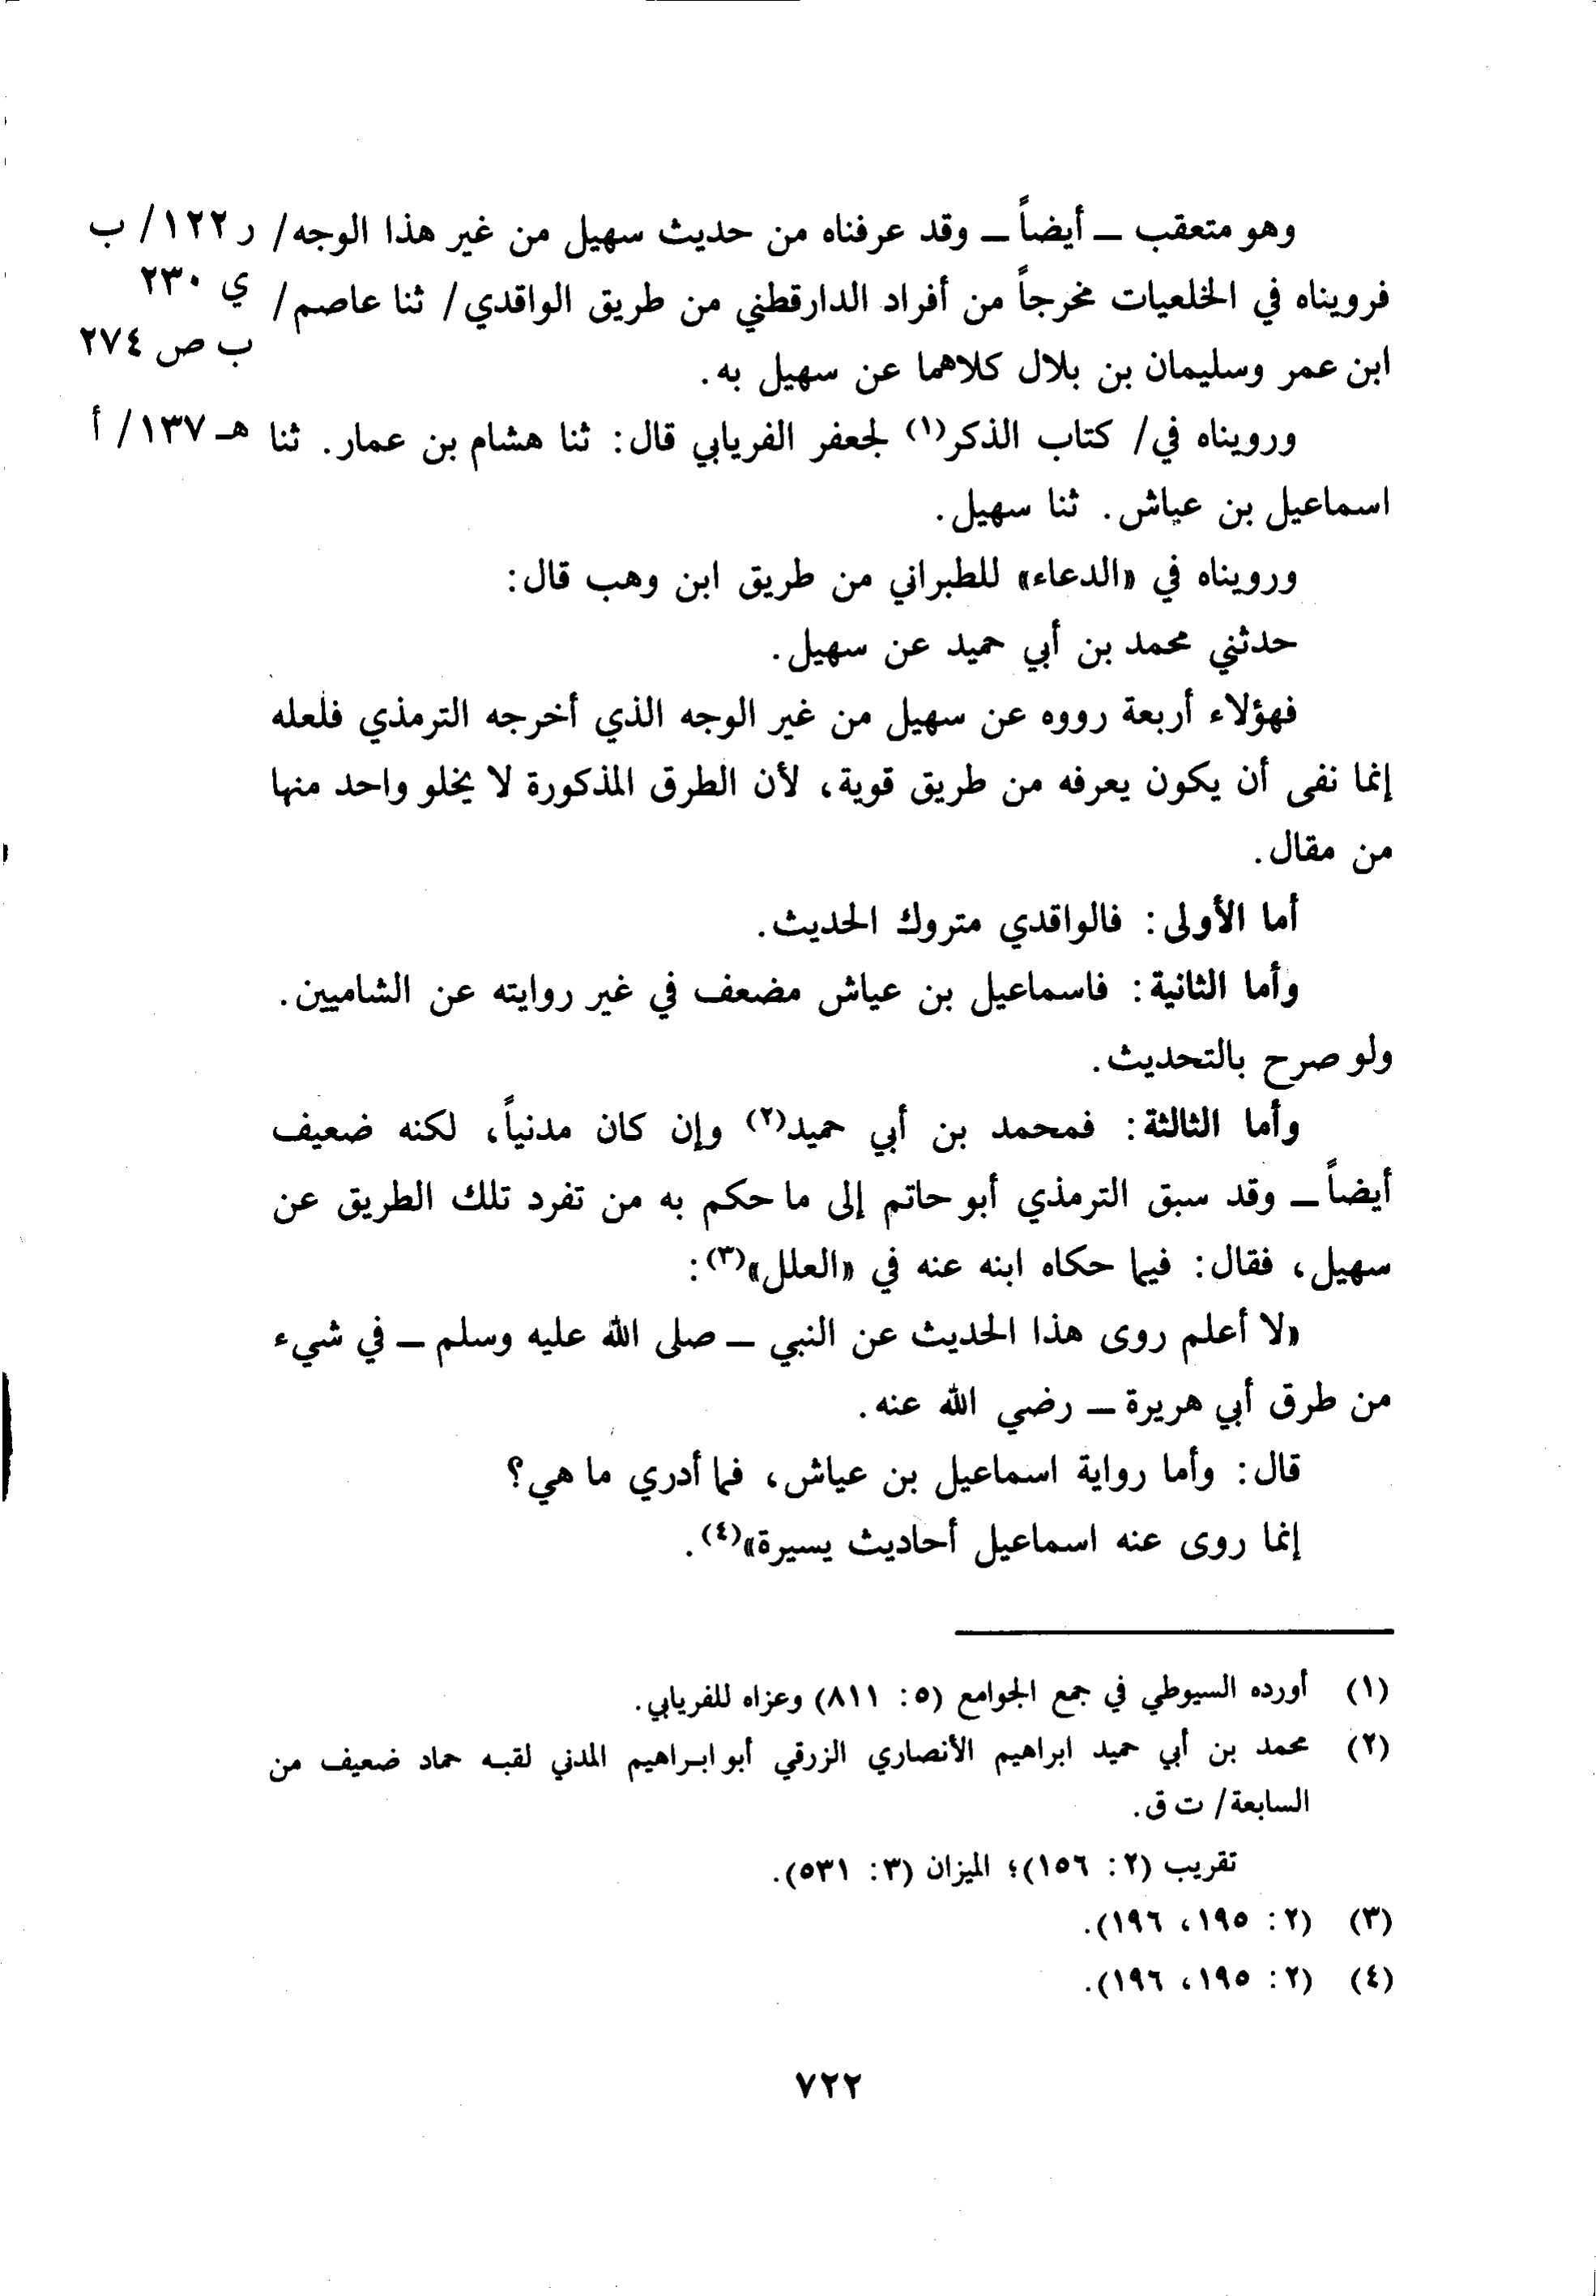 وهو متعقب ــ أيضاً ــ وقد عرفناه من حديث سهيل من غير هذا الوجه/ ر ١٢٢/ ب
فرويناه في الخلعيات مخرجاً من أفراد الدارقطني من طريق الواقدي/ ثنا عاصم/ ي ٢٣٠
ب ص ٢٧٤
ابن عمر وسليمان بن بلال كلاهما عن سهيل به.
ورويناه في/ كتاب الذكر(١) لجعفر الفريابي قال: ثنا هشام بن عمار. ثنا هـ ١٣٧/ أ
اسماعيل بن عياش. ثنا سهيل.
ورويناه في «الدعاء» للطبراني من طريق ابن وهب قال:
حدثني محمد بن أبي حميد عن سهيل.
فهؤلاء أربعة رووه عن سهيل من غير الوجه الذي أخرجه الترمذي فلعله
إنما نفى أن يكون يعرفه من طريق قوية، لأن الطرق المذكورة لا يخلو واحد منها
من مقال.
أما الأولى: فالواقدي متروك الحديث.
وأما الثانية: فاسماعيل بن عياش مضعف في غير روايته عن الشاميين.
ولو صرح بالتحديث.
وأما الثالثة: فمحمد بن أبي حميد(٢) وإن كان مدنياً، لكنه ضعيف
أيضاً ــ وقد سبق الترمذي أبو حاتم إلى ما حكم به من تفرد تلك الطريق عن
سهيل، فقال: فيما حكاه ابنه عنه في «العلل»(٣):
«لا أعلم روى هذا الحديث عن النبي ــ صلى الله عليه وسلم ــ في شيء
من طرق أبي هريرة ــ رضي الله عنه.
قال: وأما رواية اسماعيل بن عياش، فما أدري ما هي؟
إنما روى عنه اسماعيل أحاديث يسيرة»(٤).
(١) أورده السيوطي في جمع الجوامع (٥: ٨١١) وعزاه للفريابي.
(٢) محمد بن أبي حميد ابراهيم الأنصاري الزرقي أبو ابراهيم المدني لقبه حماد ضعيف من
السابعة/ ت ق.
تقريب (٢: ١٥٦)؛ الميزان (٣: ٥٣١).
(٣) (٢: ١٩٥، ١٩٦).
(٤) (٢: ١٩٥، ١٩٦).
٧٢٢